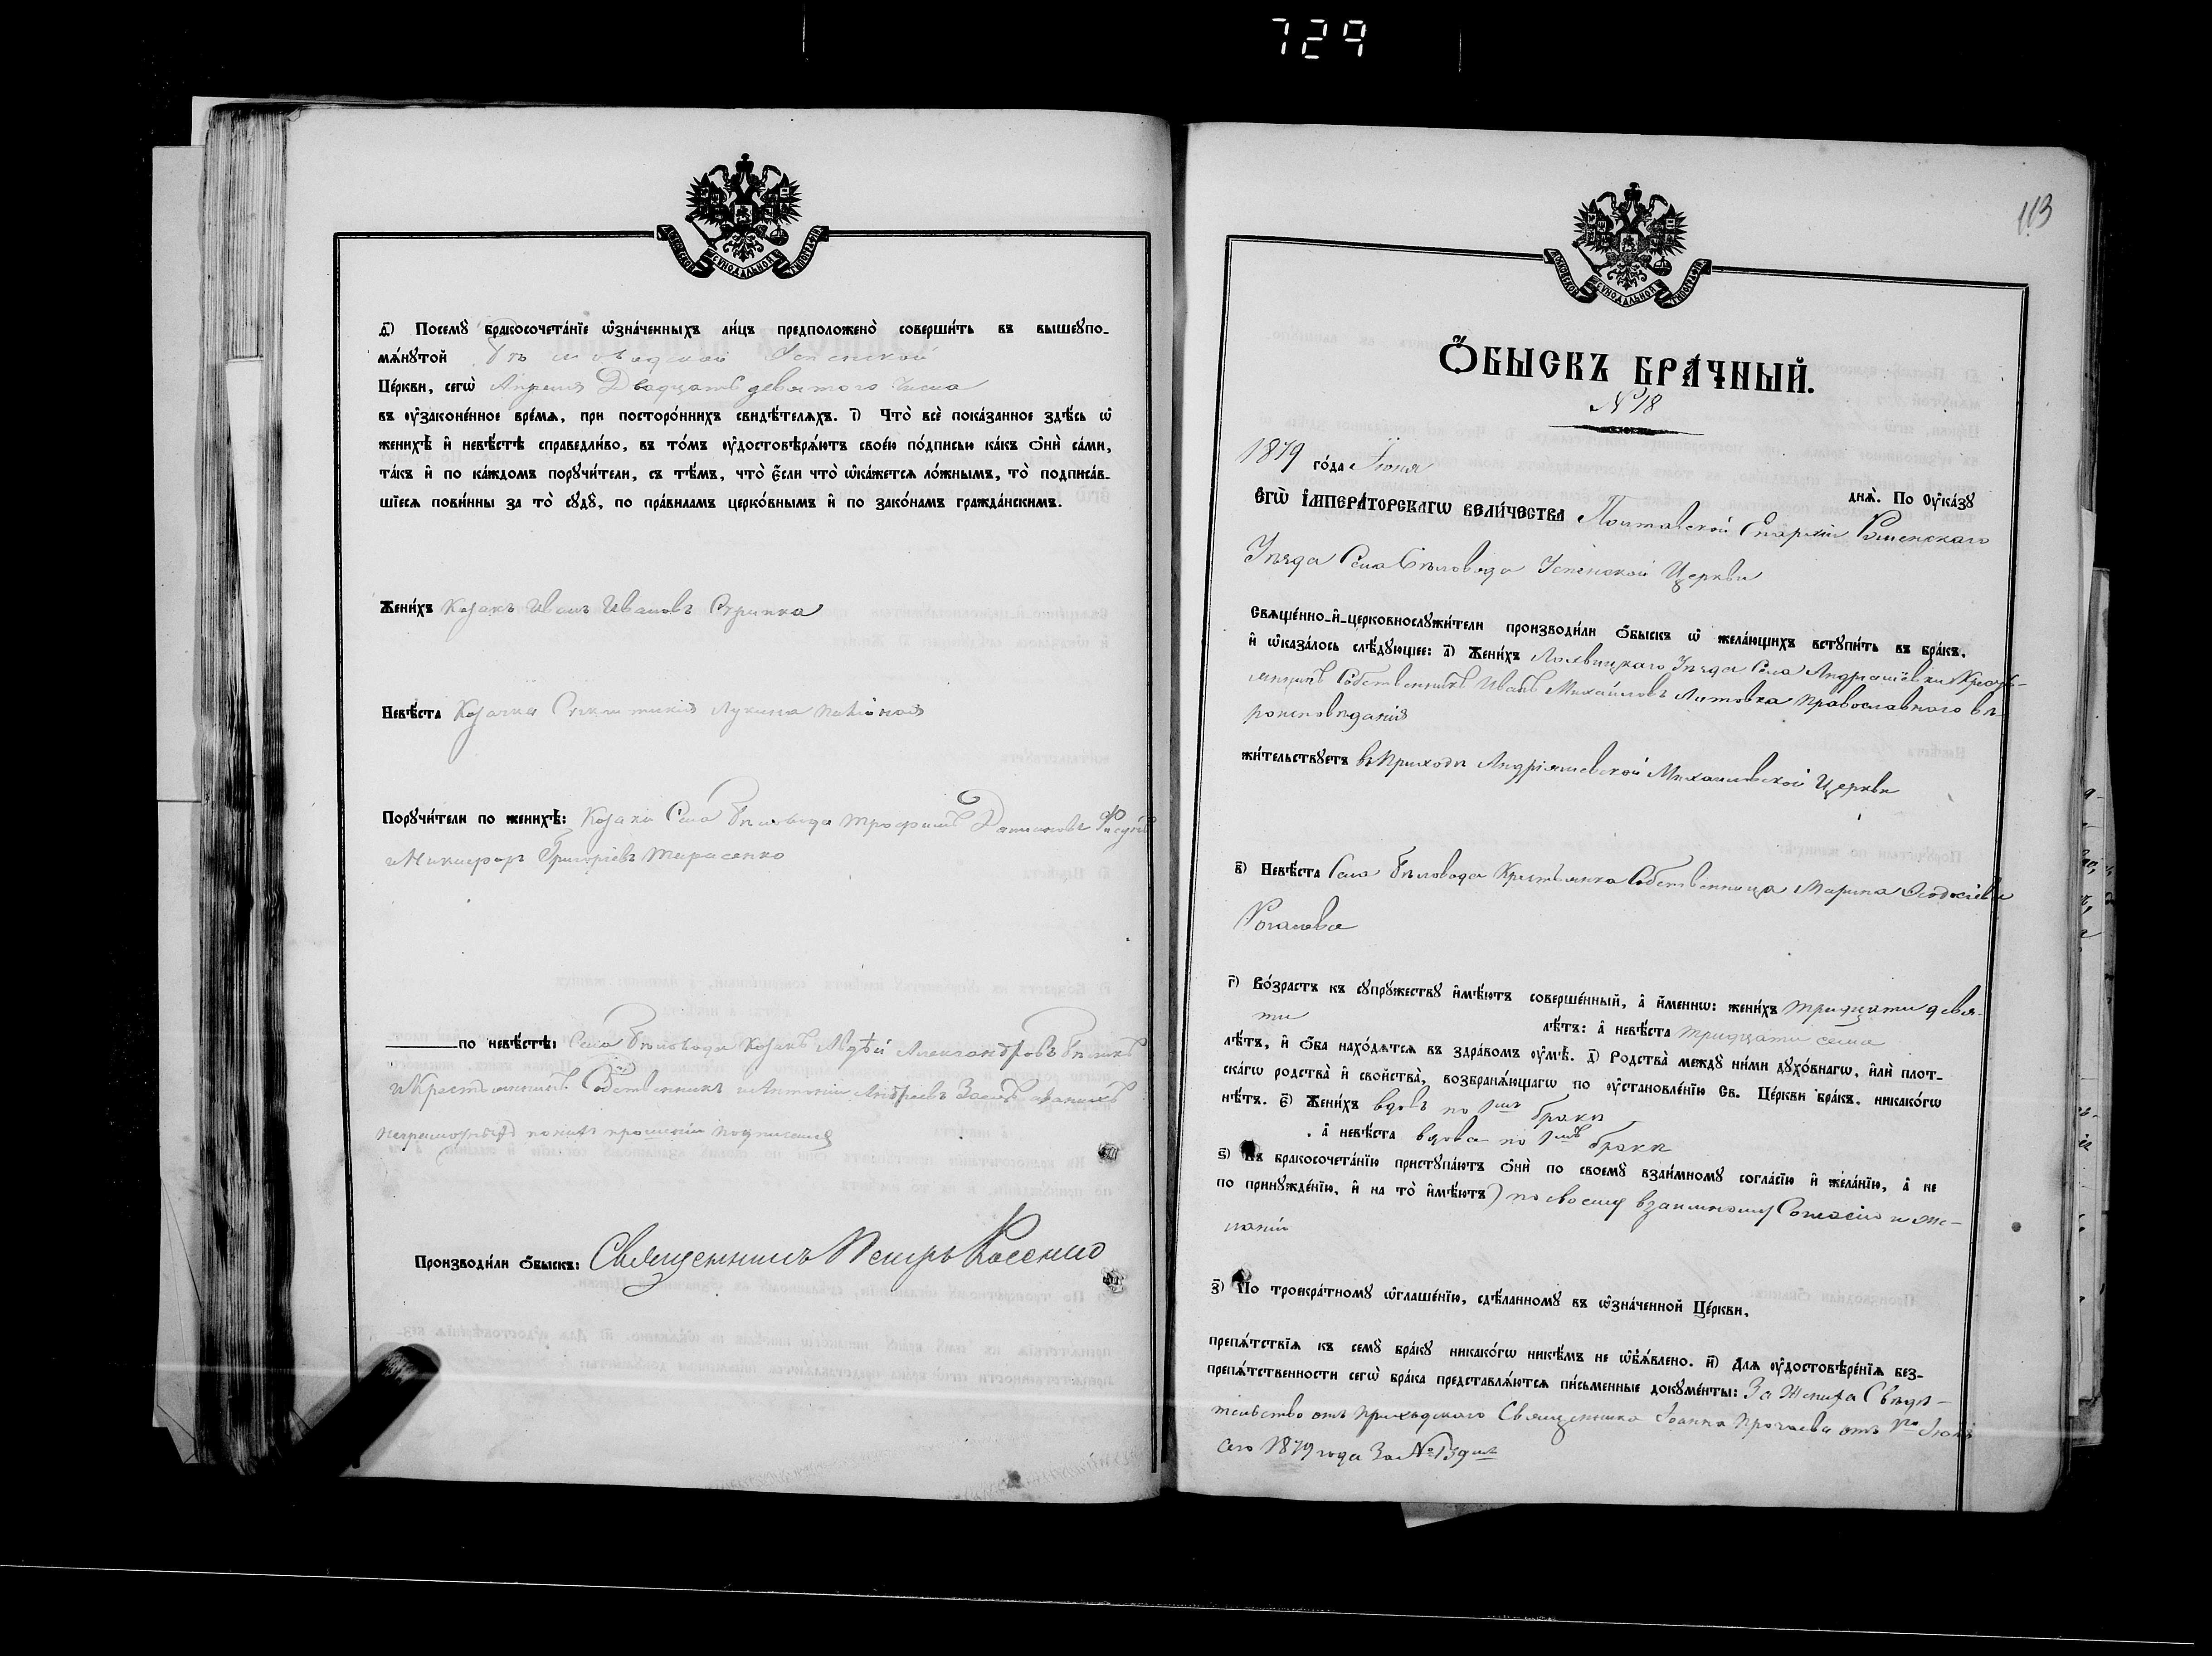 729
МОСКОВСКОЙ СѴНОДАЛЬНОЙ ТИПОГРАФІИ
д҃) Посемꙋ̀ бракосочета́нїе ѡ҆зна́ченныхъ ли́цъ предположено̀ соверши́ть въ вышеꙋпо-
мѧ́нꙋтой Бѣловодской Успенской
Це́ркви, сегѡ̀ Апреля Двадцать девятого числа
въ ᲂу҆законе́нное вре́мѧ, при посторо́ннихъ свидѣ́телѧхъ. і҃) Что̀ всѐ пока́занное здѣ́сь ѡ҆
женихѣ̀ и҆ невѣ́стѣ справедли́во, въ то́мъ ᲂу҆достовѣрѧ́ютъ свое́ю по́дписью ка́къ ѻ҆нѝ са́ми,
та́къ и҆ по ка́ждомъ порꙋчи́тели, съ тѣ́мъ, что̀ є҆́сли что̀ ѡ҆ка́жетсѧ ло́жнымъ, то̀ подписа́в-
шїесѧ пови́нны за то̀ сꙋдꙋ̀, по пра́виламъ церко́внымъ и҆ по зако́намъ гражда́нскимъ.
Жени́хъ Козакъ Иванъ Ивановъ Скрипка
Невѣ́ста Козачка Лукина
Порꙋчи́тели по женихѣ̀: Козаки Села Бѣловода Трофимъ
и Никифоръ Григоріевъ Тарасенко
по невѣ́стѣ: Села Бѣловода Козакъ Александровъ
и Крестьянинъ Собственникъ Антоній Андреевъ
неграмотны
Производи́ли ѻ҆́быскъ: Священникъ Петръ
113
МОСКОВСКОЙ СѴНОДАЛЬНОЙ ТИПОГРАФІИ
Ѻ҆́БЫСКЪ БРА́ЧНЫЙ.
№ 18
1879 го́да Іюня
днѧ̀. По Оу҆ка́зꙋ
Є҆гѡ̀ І҆мпера́торскагѡ вели́чества Полтавской Епархіи Роменскаго
Уѣзда Села Бѣловода Успенской Церкви
Свѧще́нно-и҆-церковнослꙋжи́тели производи́ли ѻ҆́быскъ ѡ҆ жела́ющихъ встꙋпи́ть въ бра́къ,
и҆ ѡ҆каза́лось слѣ́дꙋющее: а҃) Жени́хъ Лохвицкаго Уѣзда Села Андріяшевки Кресть-
янинъ Собственникъ Иванъ Михайловъ Литовка Православнаго вѣ-
роисповѣданія
жи́тельствꙋетъ въ Приходѣ Андріяшевской Михаиловской Церкви
в҃) Невѣ́ста Села Бѣловода Крестьянка Собственница Марина Ѳеодосіева
Рогалева
г҃) Во́зрастъ къ сꙋпрꙋ́жествꙋ и҆мѣ́ютъ соверше́нный, а҆ и҆́меннѡ: жени́хъ тридцати девя-
ти лѣ́тъ: а҆ невѣ́ста тридцати семи
лѣ́тъ, и҆ ѻ҆́ба нахо́дѧтсѧ въ здра́вомъ ᲂу҆мѣ̀. д҃) Родства̀ междꙋ̀ ни́ми дꙋхо́внагѡ, и҆лѝ плот-
ска́гѡ родства̀ и҆ сво́йства̀, возбранѧ́ющагѡ по ᲂу҆становле́нїю Св. Це́ркви бра́къ, никако́гѡ
нѣ́тъ. є҃) Жени́хъ вдовъ по 1мъ бракѣ
, а҆ невѣ́ста вдова по 1мъ бракѣ
ѕ҃) Къ бракосочета́нїю приступа́ютъ ѻ҆нѝ по своемꙋ̀ взаи́мномꙋ согла́сїю и҆ жела́нїю, а҆ не
по принꙋжде́нїю, и҆ на то̀ и҆мѣ́ютъ) по своему взаимному Согласію и же-
ланію
з҃) По троекра́тномꙋ ѡ҆глаше́нїю, сдѣ́ланномꙋ въ ѡ҆зна́ченной Це́ркви,
препѧ́тствїѧ къ семꙋ̀ бра́кꙋ никако́гѡ никѣ́мъ не ѡ҆б̾ѧ́влено. и҃) Длѧ ᲂу҆достовѣре́нїѧ без-
препѧ́тственности сегѡ̀ бра́ка представлѧ́ютсѧ пи́сьменные докꙋме́нты: За Жениха Свидѣ-
тельство отъ приходскаго Священника Іоанна отъ 1го Іюня
сего 1879 года За № 139мъ